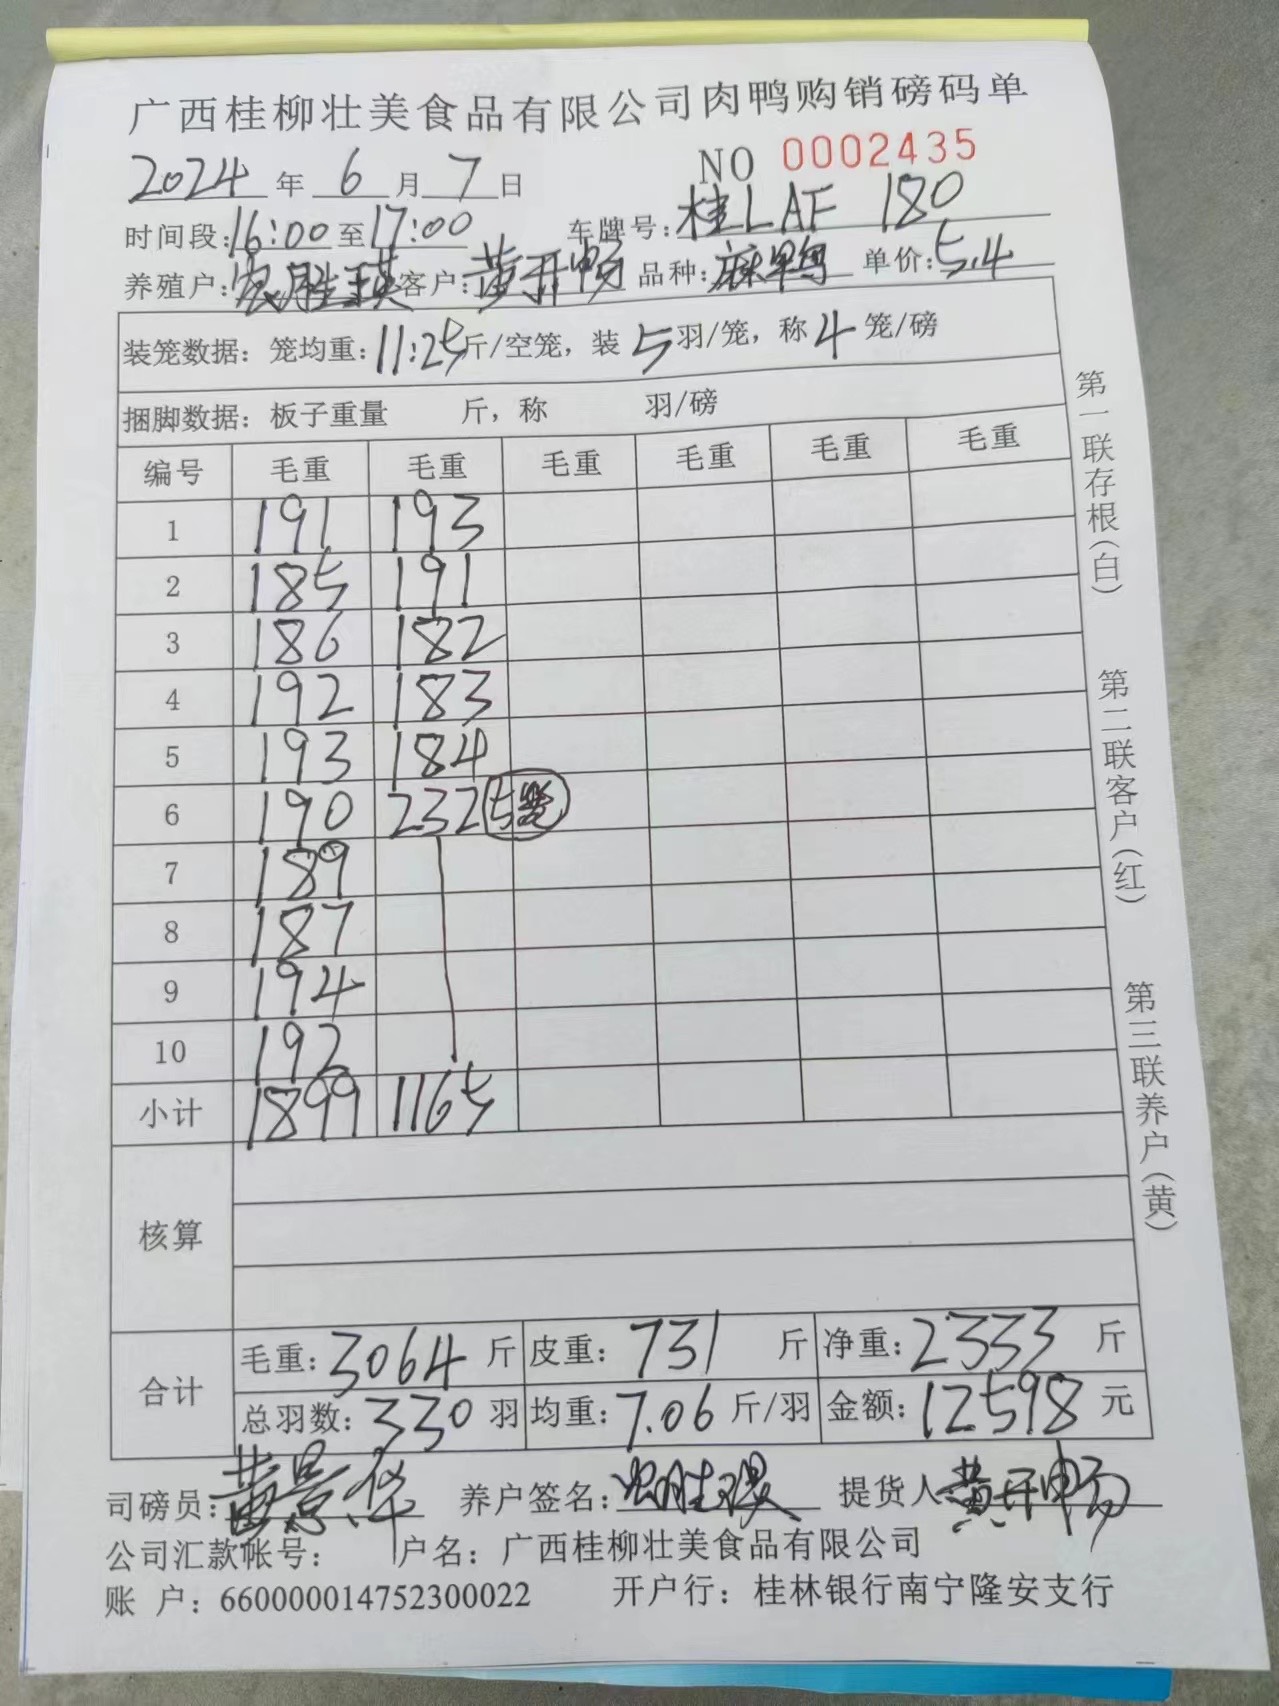 广西桂柳壮美食品有限公司肉鸭购销磅码单
NO 0002435
2024年 6月 7日
时间段:16:00至17:00 车牌号:桂LAF 180
养殖户:农胜瑛 客户:黄开畅 品种:麻鸭 单价:5.4
装笼数据: 笼均重:11:25斤/空笼, 装 5羽/笼, 称4笼/磅
捆脚数据: 板子重量 斤, 称 羽/磅
编号 毛重 毛重 毛重 毛重 毛重 毛重
1 191 193
2 185 191
3 186 182
4 192 183
5 193 184
6 190 232 5笼
7 189
8 187
9 194
10 192
小计 1899 1165
核算
合计 毛重:3064斤 皮重:731斤 净重:2333斤
总羽数:330羽 均重:7.06斤/羽 金额:12598元
司磅员:黄景华 养户签名:农胜瑛 提货人 黄开畅
公司汇款帐号: 户名: 广西桂柳壮美食品有限公司
账 户: 660000014752300022 开户行: 桂林银行南宁隆安支行
第一联存根(白)
第二联客户(红)
第三联养户(黄)